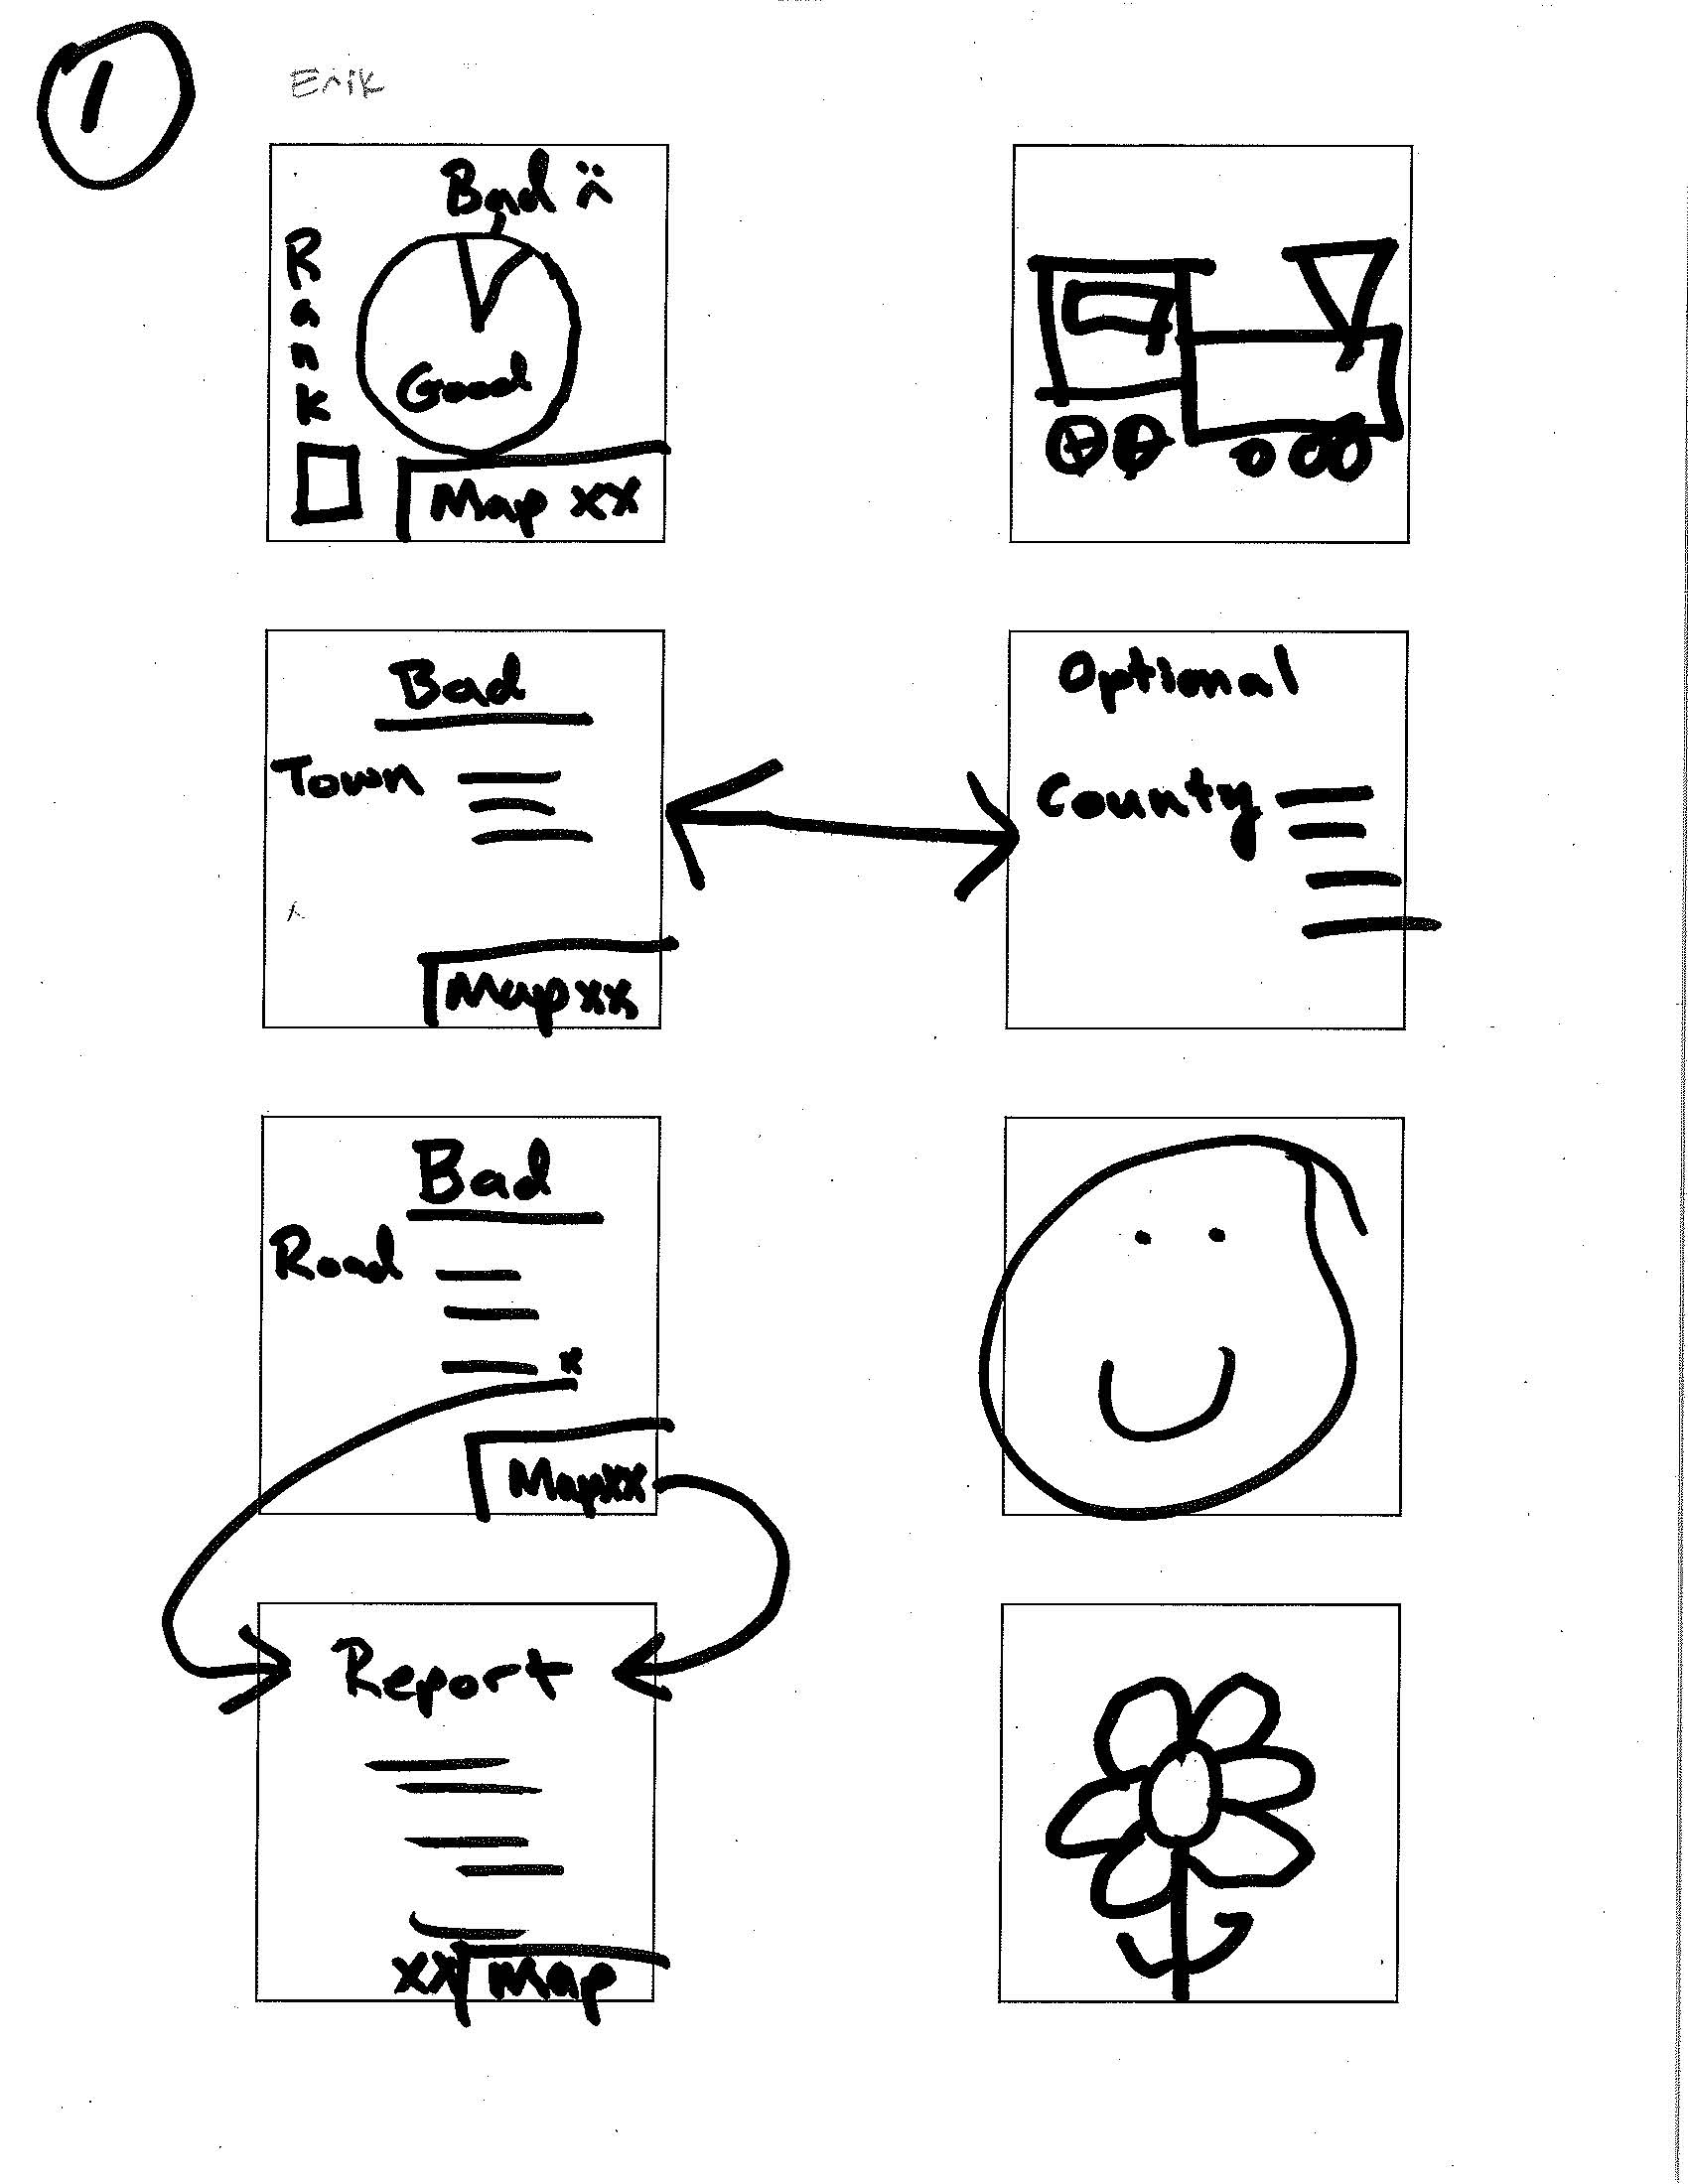 1
Erik
Bad
Rank
Good
Map xx
Bad
Town
Map xx
Optional
County
Bad
Road
x
Map xx
Report
xx Map